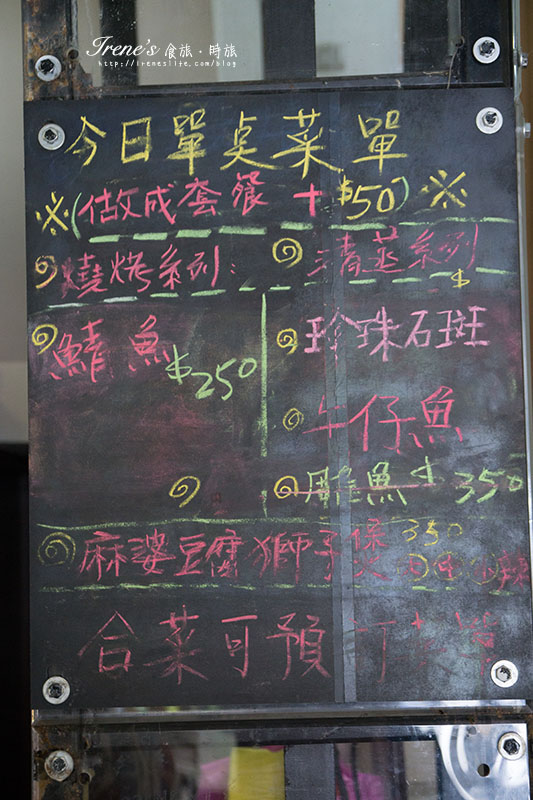 Irene's 食旅・時旅
http://ireneslife.com/blog
今日單桌菜單
※(做成套餐 + $50)※
燒烤系列: 清蒸系列
$
鯖魚 $250
珍珠石斑
午仔魚
魚 $350
麻婆豆腐獅子 350
辣
合菜可預訂